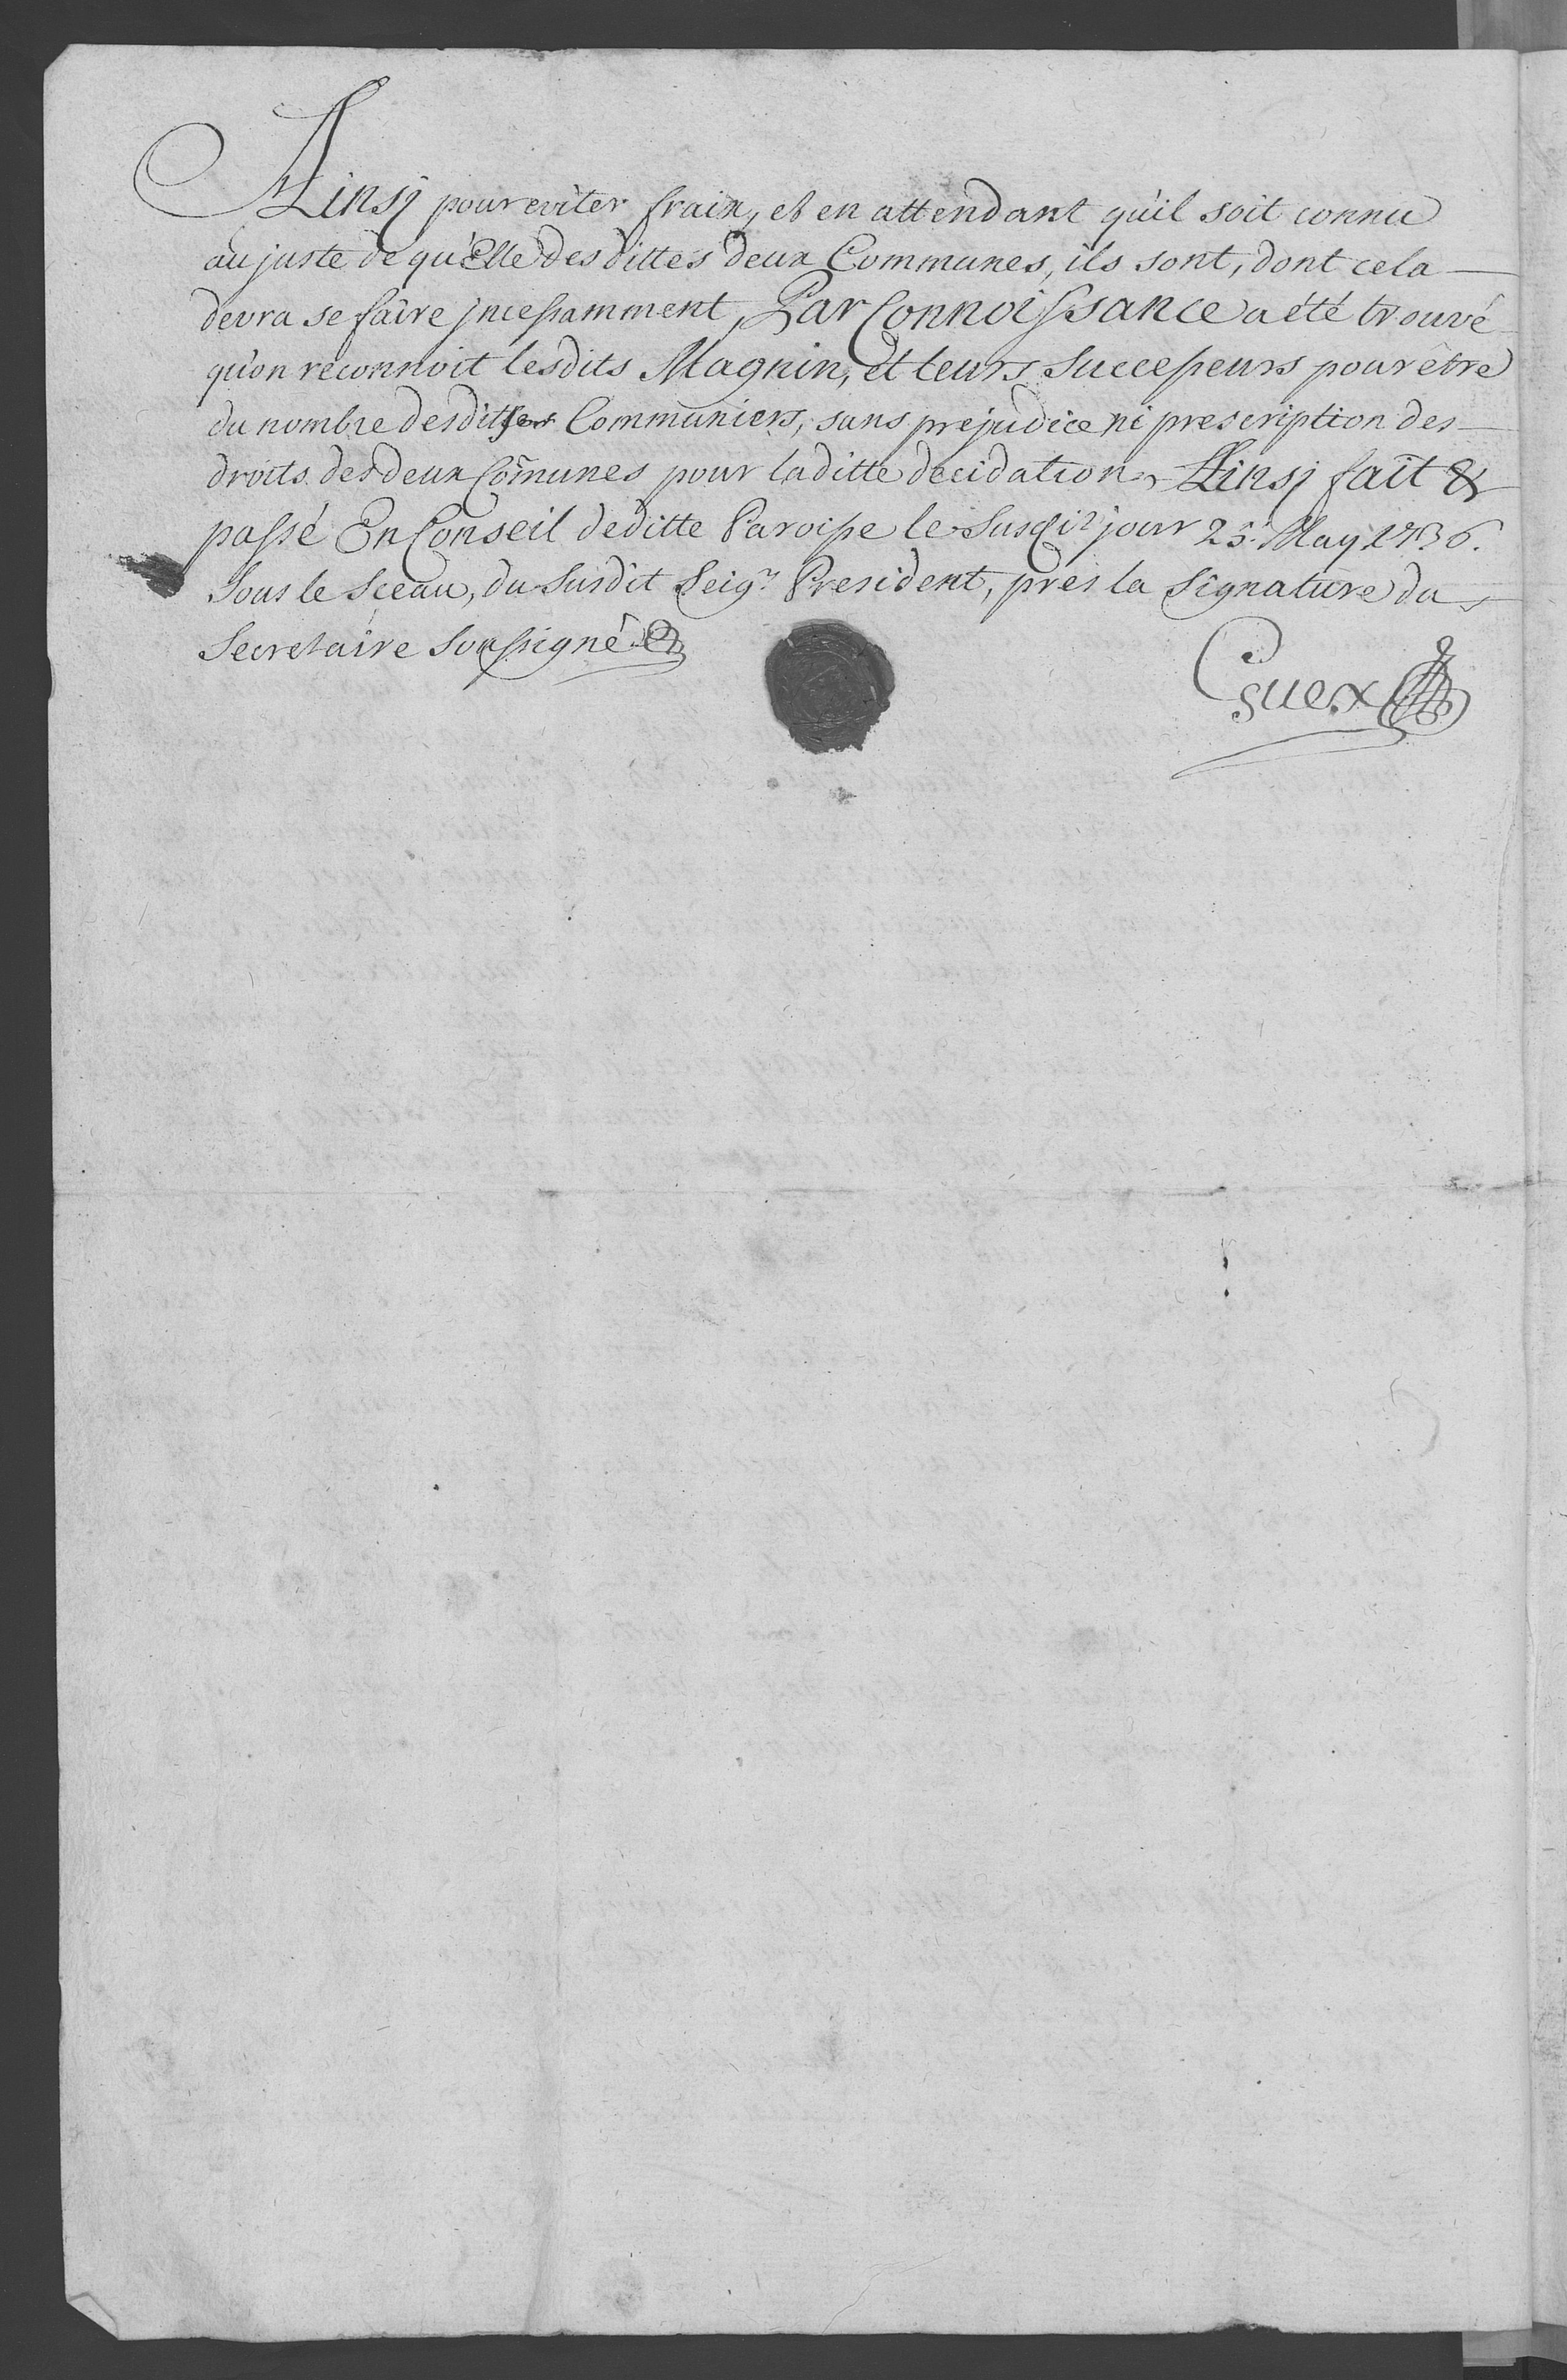 Ainsj pour eviter fraix, et en attendant qu'il soit connu
au juste de qu'Elle des dittes deux Communes, ils sont, dont cela
devra se faire jncessamment, Par Connoissance a été trouvé
qu'on reconnoit lesdits Magnin, et leurs Successeurs pour être
du nombre desdits Communiers, sans prejudice ni prescription des
droits des deux Com̃unes pour laditte decidation, Ainsj fait &
passé En Conseil deditte Paroisse le Susdit jour 25.e May 1736.
Sous le Sceau, du Susdit Seigr. President, pres la Signature du
Secretaire Soussigné
Guex